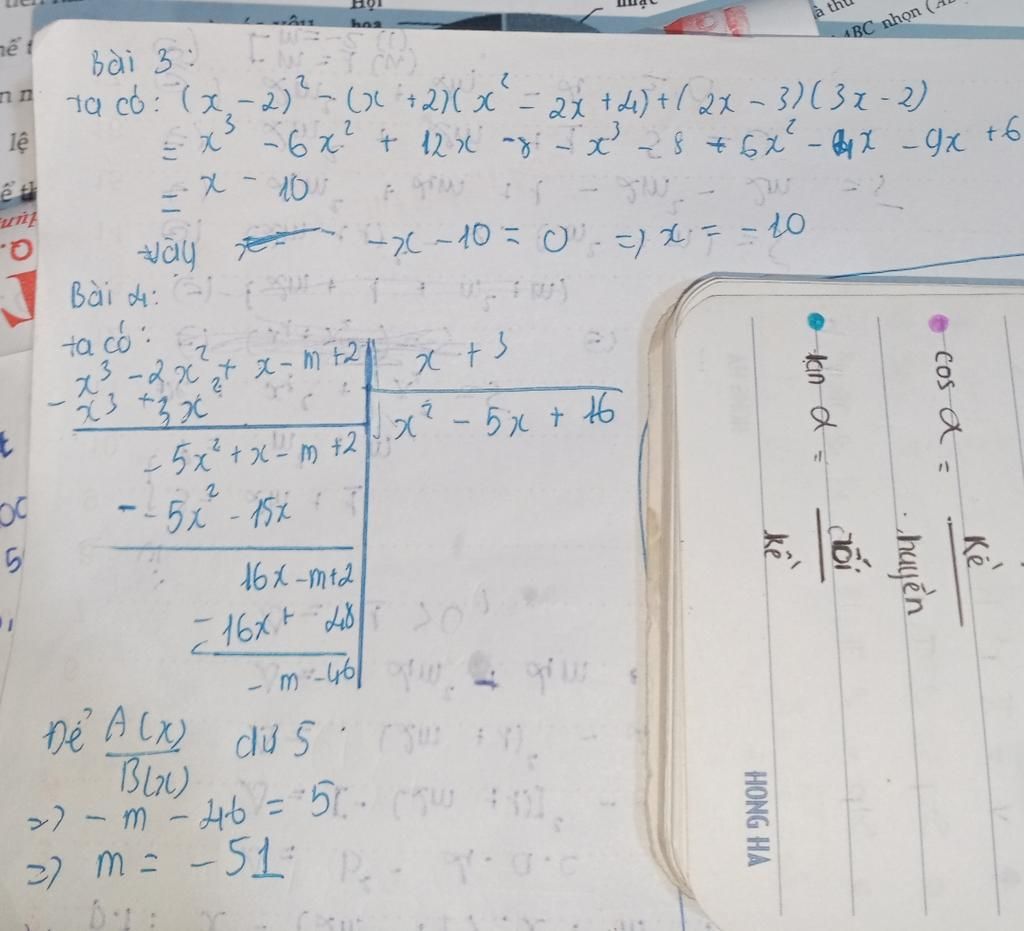 Hội
hoa
à thu
ABC nhọn (A
lệ
Bài 3:
ta có: (x - 2)³ - (x + 2)(x² - 2x + 4) + (2x - 3)(3x - 2)
= x³ - 6x² + 12x - 8 - x³ - 8 + 6x² - 4x - 9x + 6
= x - 10
vậy - x - 10 = 0 => x = -10
Bài 4:
ta có:
x³ - 2x² + x - m + 2 | x + 3
- x³ + 3x² | x² - 5x + 16
- 5x² + x - m + 2
- - 5x² - 15x
16x - m + 2
- 16x + 48
- m - 46
Để A(x)/B(x) dư 5
=> - m - 46 = 5
=> m = - 51
cos α = kề / huyền
tan α = đối / kề
HONG HA